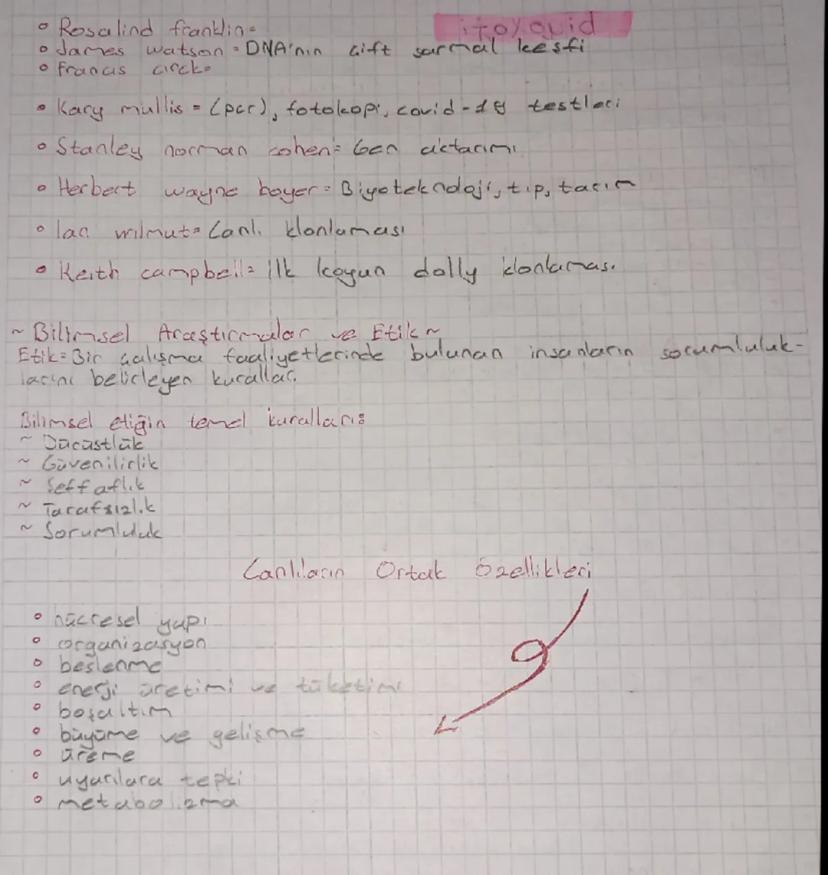 itoyquid
• Rosalind franklin =
• James watson = DNA'nın çift sarmal keşfi
• francis circk =
• Kary mullis = (pcr), fotokopi, covid-19 testleri
• Stanley norman cohen = Gen aktarımı
• Herbert wayne boyer = Biyoteknoloji, tıp, tarım
• Ian wilmut = Canlı klonlaması
• Keith campbell = ilk koyun dolly klonlaması
~ Bilimsel Araştırmalar ve Etik ~
Etik = Bir çalışma faaliyetlerinde bulunan insanların sorumluluk-
larını belirleyen kurallar.
Bilimsel etiğin temel kuralları:
~ Dürüstlük
~ Güvenilirlik
~ Şeffaflık
~ Tarafsızlık
~ Sorumluluk
Canlıların Ortak Özellikleri
• hücresel yapı
• organizasyon
• beslenme
• enerji üretimi ve tüketimi
• boşaltım
• büyüme ve gelişme
• üreme
• uyarılara tepki
• metabolizma